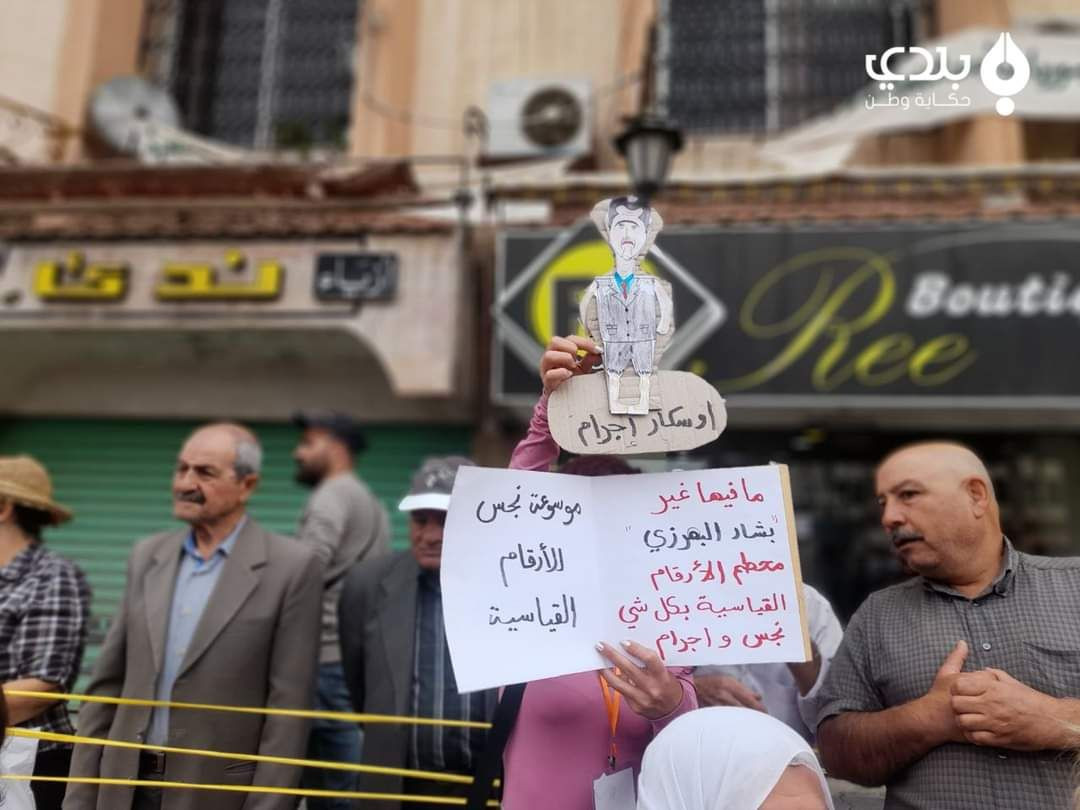 بلدي
حكاية وطن
ازياء
Bouti
Ree
اوسكار إجرام
موسوعة نجس
للأرقام
القياسية
ما فيها غير
"بشار البهرزي"
محطم الأرقام
القياسية بكل شي
نجس و اجرام